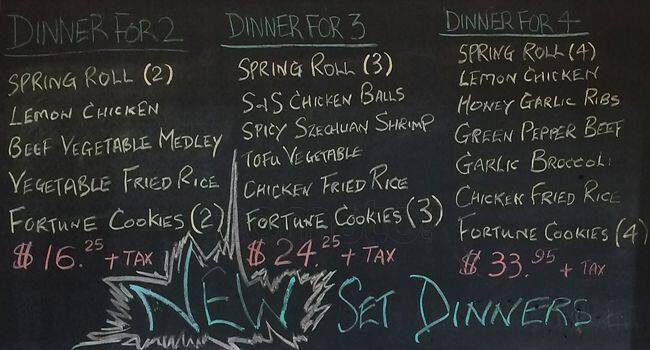 DINNER FOR 2
SPRING ROLL (2)
LEMON CHICKEN
BEEF VEGETABLE MEDLEY
VEGETABLE FRIED RICE
FORTUNE COOKIES (2)
$16.25 + TAX
DINNER FOR 3
SPRING ROLL (3)
S+S CHICKEN BALLS
SPICY SZECHUAN SHRIMP
TOFU VEGETABLE
CHICKEN FRIED RICE
FORTUNE COOKIES (3)
$24.25 + TAX
DINNER FOR 4
SPRING ROLL (4)
LEMON CHICKEN
HONEY GARLIC RIBS
GREEN PEPPER BEEF
GARLIC BROCCOLI
CHICKEN FRIED RICE
FORTUNE COOKIES (4)
$33.95 + TAX
NEW SET DINNERS